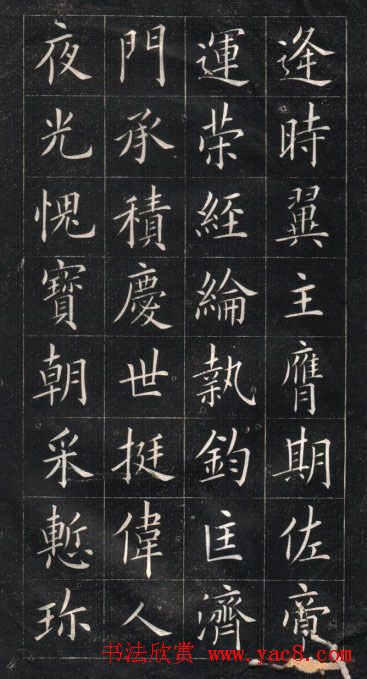 逢時翼主膺期佐
運荣經綸執鈞匡濟
門承積慶世挺偉人
夜光愧寶朝采慙珎
书法欣赏 www.yac8.com